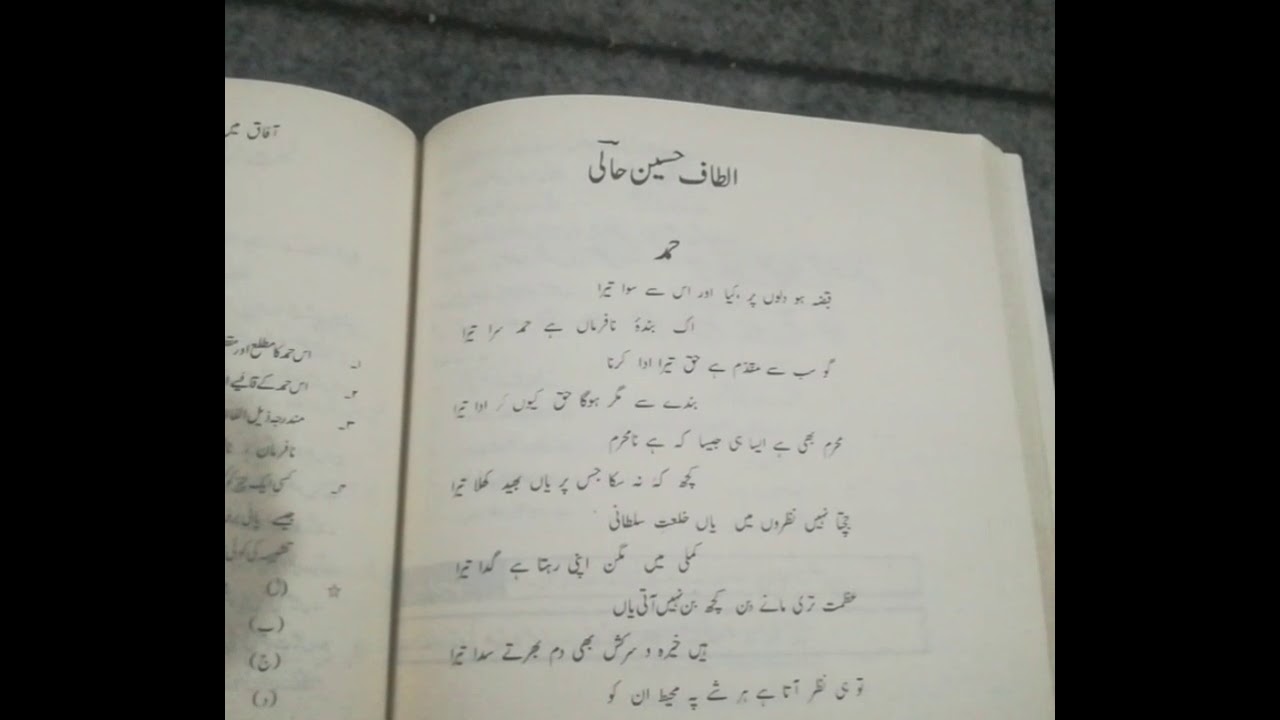 الطاف حسین حالی
حمد
قبضہ ہو دلوں پر کیا اور اس سے سوا تیرا
اک بندۂ نافرماں ہے حمد سرا تیرا
گو سب سے مقدّم ہے حق تیرا ادا کرنا
بندے سے مگر ہوگا حق کیوں کر ادا تیرا
محرم بھی ہے ایسا ہی جیسا کہ ہے نامحرم
کچھ کہ نہ سکا جس پر یاں بھید کھلا تیرا
جچتا نہیں نظروں میں یاں خلعت سلطانی
کملی میں مگن اپنی رہتا ہے گدا تیرا
عظمت تری مانے بن کچھ بن نہیں آتی یاں
ہیں خیرہ و سرکش بھی دم بھرتے سدا تیرا
تو ہی نظر آتا ہے ہر شے پہ محیط ان کو
آفاق میں
۱۔ اس حمد کا مطلع اور
۲۔ اس حمد کے قافیے
۳۔ مندرجہ ذیل
نافرمان
۴۔ کسی ایک چیز کو
جیسے پانی
تشبیہ کی کوئی
☆ (ا)
(ب)
(ج)
(د)